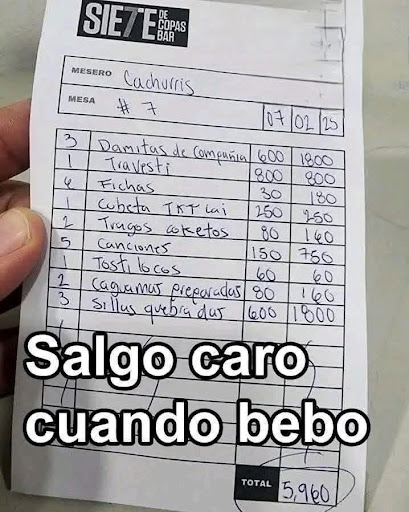 SIE7E DE COPAS BAR
MESERO Cachurris
MESA # 7 07 02 25
3 Damitas de Compañia 600 1800
1 Travesti 800 800
6 Fichas 30 180
1 Cubeta TKT Lai 250 250
2 Tragos coketos 80 160
5 Canciones 150 750
1 Tosti locos 60 60
2 caguamas preparadas 80 160
3 sillas quebradas 600 1800
Salgo caro
cuando bebo
TOTAL 5,960